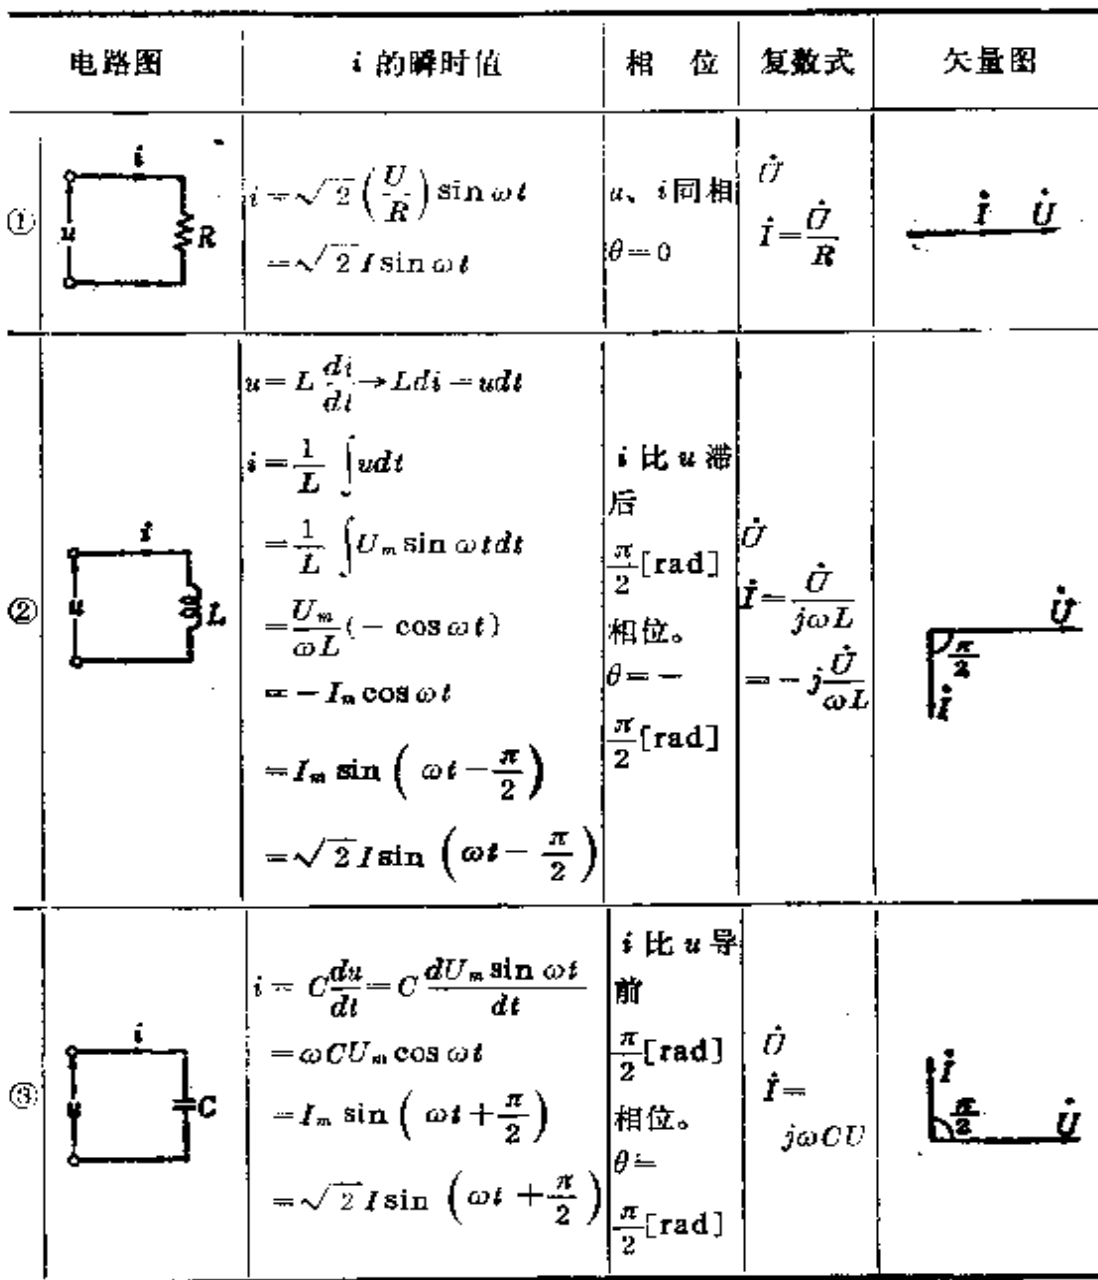 电路图 i 的瞬时值 相 位 复数式 矢量图
① i u R
i = √2 (U/R) sin ωt
= √2 I sin ωt
u、i同相
θ = 0
U̇
İ = U̇/R
İ U̇
② i u L
u = L di/dt → Ldi = udt
i = 1/L ∫udt
= 1/L ∫U_m sin ωtdt
= U_m/ωL (− cos ωt)
= −I_m cos ωt
= I_m sin (ωt − π/2)
= √2 I sin (ωt − π/2)
i 比 u 滞
后
π/2 [rad]
相位。
θ = −
π/2 [rad]
U̇
İ = U̇/jωL
= −j U̇/ωL
U̇
π/2
İ
③ i u C
i = C du/dt = C dU_m sin ωt/dt
= ωCU_m cos ωt
= I_m sin (ωt + π/2)
= √2 I sin (ωt + π/2)
i 比 u 导
前
π/2 [rad]
相位。
θ =
π/2 [rad]
U̇
İ =
jωCU
İ
π/2
U̇